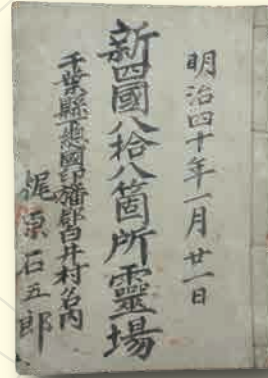 明治四十年一月廿一日
新四國八拾八箇所靈場
千葉縣下總國印旛郡白井村名内
梶原石五郎